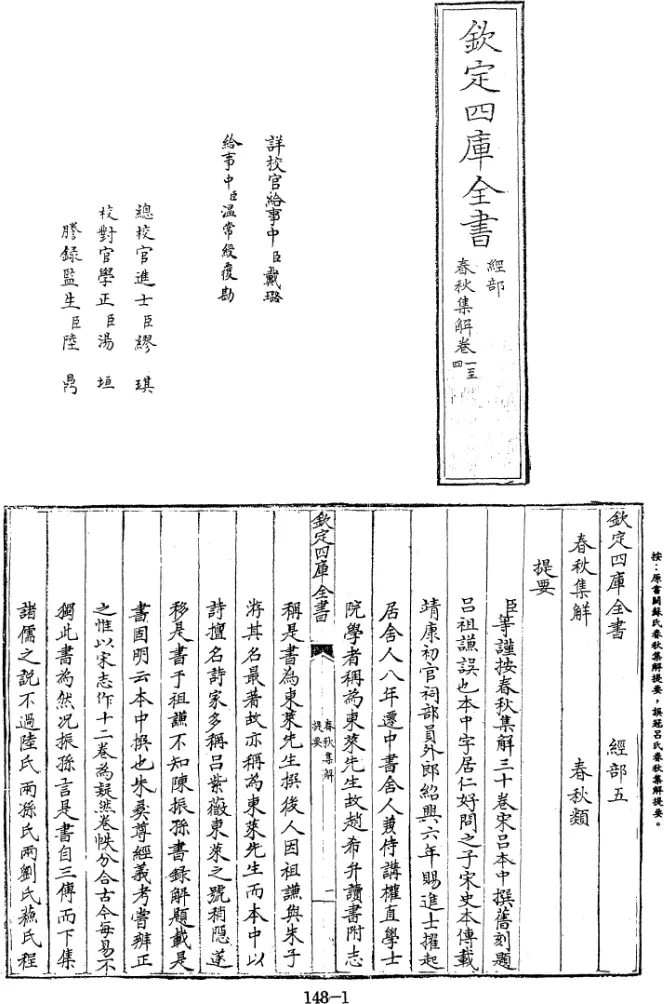 欽定四庫全書
經部
春秋集解卷一至四
詳校官給事中臣戴璐
給事中臣溫常綬覆勘
總校官進士臣繆琪
校對官學正臣湯垣
謄錄監生臣陸
按：原書闕蘇氏春秋集解提要，誤冠呂氏春秋集解提要。
欽定四庫全書　經部五
春秋集解　春秋類
提要
臣等謹按春秋集解三十卷宋呂本中撰舊刻題
呂祖謙誤也本中字居仁好問之子宋史本傳載
靖康初官祠部員外郎紹興六年賜進士擢起
居舍人八年遷中書舍人兼侍講權直學士
院學者稱為東萊先生故趙希弁讀書附志
欽定四庫全書
春秋集解
提要
一
稱是書為東萊先生撰後人因祖謙與朱子
游其名最著故亦稱為東萊先生而本中以
詩擅名詩家多稱呂紫薇東萊之號稍隱遂
移是書于祖謙不知陳振孫書錄解題載是
書固明云本中撰也朱彝尊經義考嘗辨正
之惟以宋志作十二卷為疑然卷帙分合古今每易不
獨此書為然況振孫言是書自三傳而下集
諸儒之說不過陸氏兩孫氏兩劉氏蘇氏程
148-1